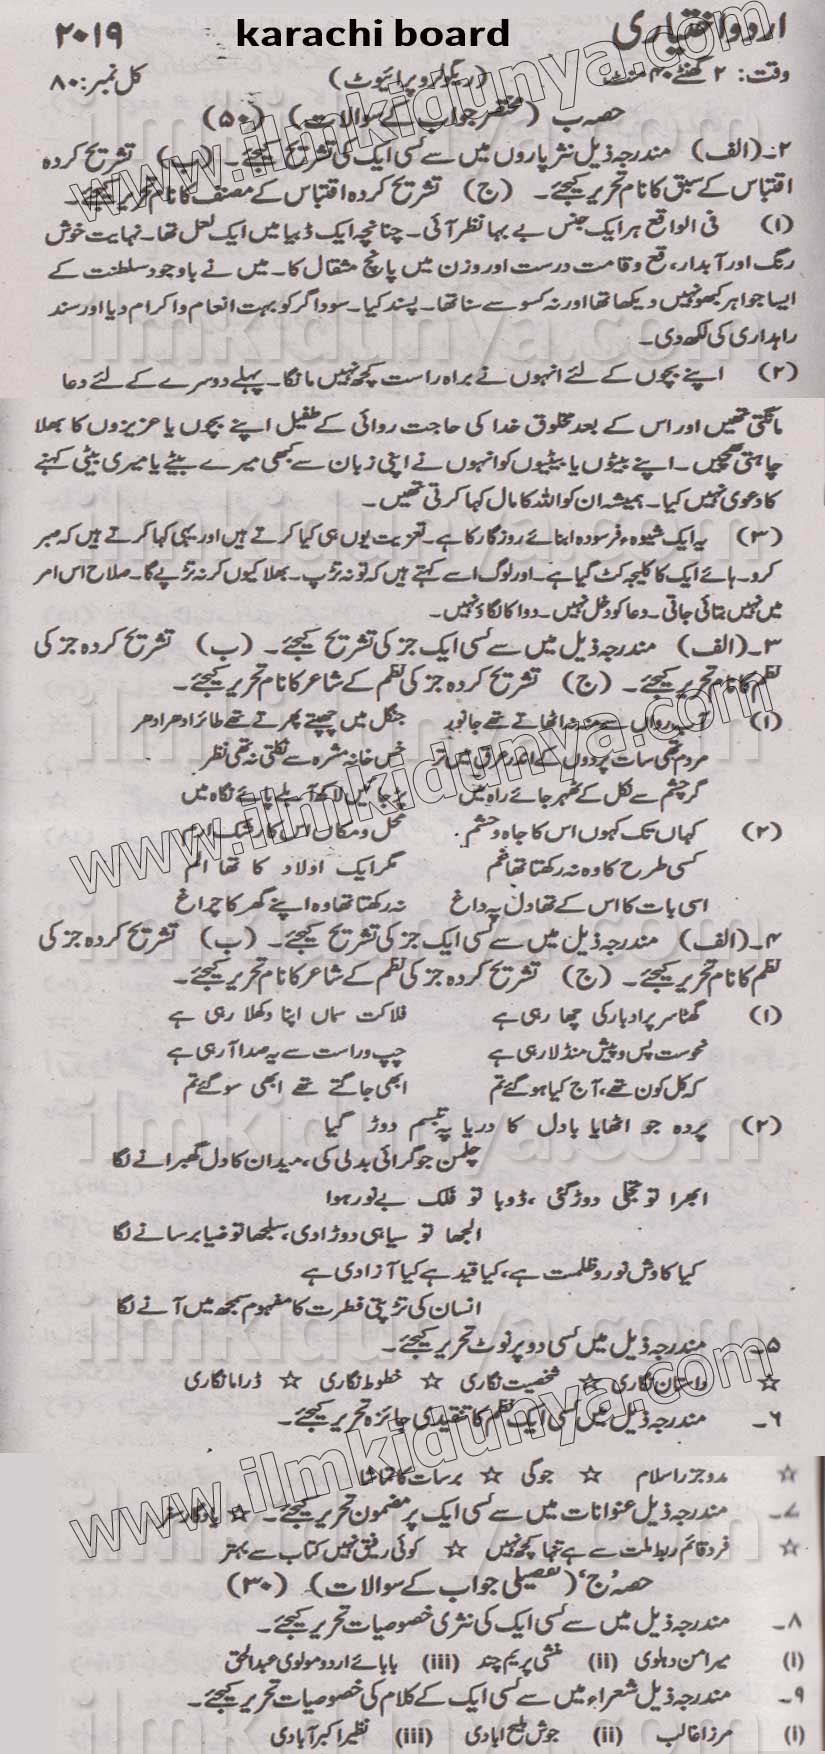 اردو اختیاری karachi board ۲۰۱۹
وقت: ۲ گھنٹے ۴۰ منٹ (ریگولر و پرائیوٹ) کل نمبر: ۸۰
حصہ ب (مختصر جواب کے سوالات) (۵۰)
۲۔ (الف) مندرجہ ذیل نثر پاروں میں سے کسی ایک کی تشریح کیجئے۔ (ب) تشریح کردہ
اقتباس کے سبق کا نام تحریر کیجئے۔ (ج) تشریح کردہ اقتباس کے مصنف کا نام تحریر کیجئے۔
(۱) فی الواقع ہر ایک جنس بے بہا نظر آئی۔ چنانچہ ایک ڈبیا میں ایک لعل تھا۔ نہایت خوش
رنگ اور آبدار، قع و قامت درست اور وزن میں پانچ مثقال کا۔ میں نے باوجود سلطنت کے
ایسا جواہر کبھو نہیں دیکھا تھا اور نہ کسو سے سنا تھا۔ پسند کیا۔ سوداگر کو بہت انعام و اکرام دیا اور سند
راہداری کی لکھ دی۔
(۲) اپنے بچوں کے لئے انہوں نے براہ راست کچھ نہیں مانگا۔ پہلے دوسرے کے لئے دعا
مانگتی تھیں اور اس کے بعد مخلوق خدا کی حاجت روائی کے طفیل اپنے بچوں یا عزیزوں کا بھلا
چاہتی تھیں۔ اپنے بیٹوں یا بیٹیوں کو انہوں نے اپنی زبان سے کبھی میرے بیٹے یا میری بیٹی کہنے
کا دعوی نہیں کیا۔ ہمیشہ ان کو اللہ کا مال کہا کرتی تھیں۔
(۳) یہ ایک شیوہء فرسودہ ابنائے روزگار کا ہے۔ تعزیت یوں ہی کیا کرتے ہیں اور یہی کہا کرتے ہیں کہ صبر
کرو۔ ہائے ایک کا کلیجہ کٹ گیا ہے۔ اور لوگ اسے کہتے ہیں کہ تو نہ تڑپ۔ بھلا کیوں کر نہ تڑپے گا۔ صلاح اس امر
میں نہیں بتائی جاتی۔ دعا کو دخل نہیں۔ دوا کا لگاؤ نہیں۔
۳۔ (الف) مندرجہ ذیل میں سے کسی ایک جز کی تشریح کیجئے۔ (ب) تشریح کردہ جز کی
نظم کا نام تحریر کیجئے۔ (ج) تشریح کردہ جز کی نظم کے شاعر کا نام تحریر کیجئے۔
(۱) آب رواں سے منہ نہ اٹھاتے تھے جانور جنگل میں چھپتے پھرتے تھے طائر ادھر ادھر
مردم تھی سات پردوں کے اندر عرق میں تر خس خانہ مژہ سے نکلتی نہ تھی نظر
گر چشم سے نکل کے ٹھہر جائے راہ میں پڑ جائیں لاکھ آبلے پائے نگاہ میں
(۲) کہاں تک کہوں اس کا جاہ و حشم محل و مکاں اس کا رشک ارم
کسی طرح کا وہ نہ رکھتا تھا غم مگر ایک اولاد کا تھا الم
اسی بات کا اس کے تھا دل پہ داغ نہ رکھتا تھا وہ اپنے گھر کا چراغ
۴۔ (الف) مندرجہ ذیل میں سے کسی ایک جز کی تشریح کیجئے۔ (ب) تشریح کردہ جز کی
نظم کا نام تحریر کیجئے۔ (ج) تشریح کردہ جز کی نظم کے شاعر کا نام تحریر کیجئے۔
(۱) گھٹا سر پر ادبار کی چھا رہی ہے فلاکت سماں اپنا دکھلا رہی ہے
نحوست پس و پیش منڈلا رہی ہے چپ و راست سے یہ صدا آ رہی ہے
کہ کل کون تھے، آج کیا ہو گئے تم ابھی جاگتے تھے ابھی سو گئے تم
(۲) پردہ جو اٹھایا بادل کا دریا پہ تبسم دوڑ گیا
چلمن جو گرائی بدلی کی، میدان کا دل گھبرانے لگا
ابھرا تو تجلی دوڑ گئی، ڈوبا تو فلک بے نور ہوا
الجھا تو سیاہی دوڑا دی، سلجھا تو ضیا برسانے لگا
کیا کاوش نور و ظلمت ہے، کیا قید ہے کیا آزادی ہے
انسان کی تڑپتی فطرت کا مفہوم سمجھ میں آنے لگا
۵۔ مندرجہ ذیل میں کسی دو پر نوٹ تحریر کیجئے۔
☆ داستان نگاری ☆ شخصیت نگاری ☆ خطوط نگاری ☆ ڈراما نگاری
۶۔ مندرجہ ذیل میں کسی ایک نظم کا تنقیدی جائزہ تحریر کیجئے۔
☆ مدوجزر اسلام ☆ جوگی ☆ برسات کا تماشا
۷۔ مندرجہ ذیل عنوانات میں سے کسی ایک پر مضمون تحریر کیجئے۔ ☆ یادگار سفر
☆ فرد قائم ربط ملت سے ہے تنہا کچھ نہیں ☆ کوئی رفیق نہیں کتاب سے بہتر
حصہ 'ج' (تفصیلی جواب کے سوالات) (۳۰)
۸۔ مندرجہ ذیل میں سے کسی ایک کی نثری خصوصیات تحریر کیجئے۔
(i) میر امن دہلوی (ii) منشی پریم چند (iii) بابائے اردو مولوی عبدالحق
۹۔ مندرجہ ذیل شعراء میں سے کسی ایک کے کلام کی خصوصیات تحریر کیجئے۔
(i) مرزا غالب (ii) جوش ملیح ابادی (iii) نظیر اکبر آبادی
www.ilmkidunya.com